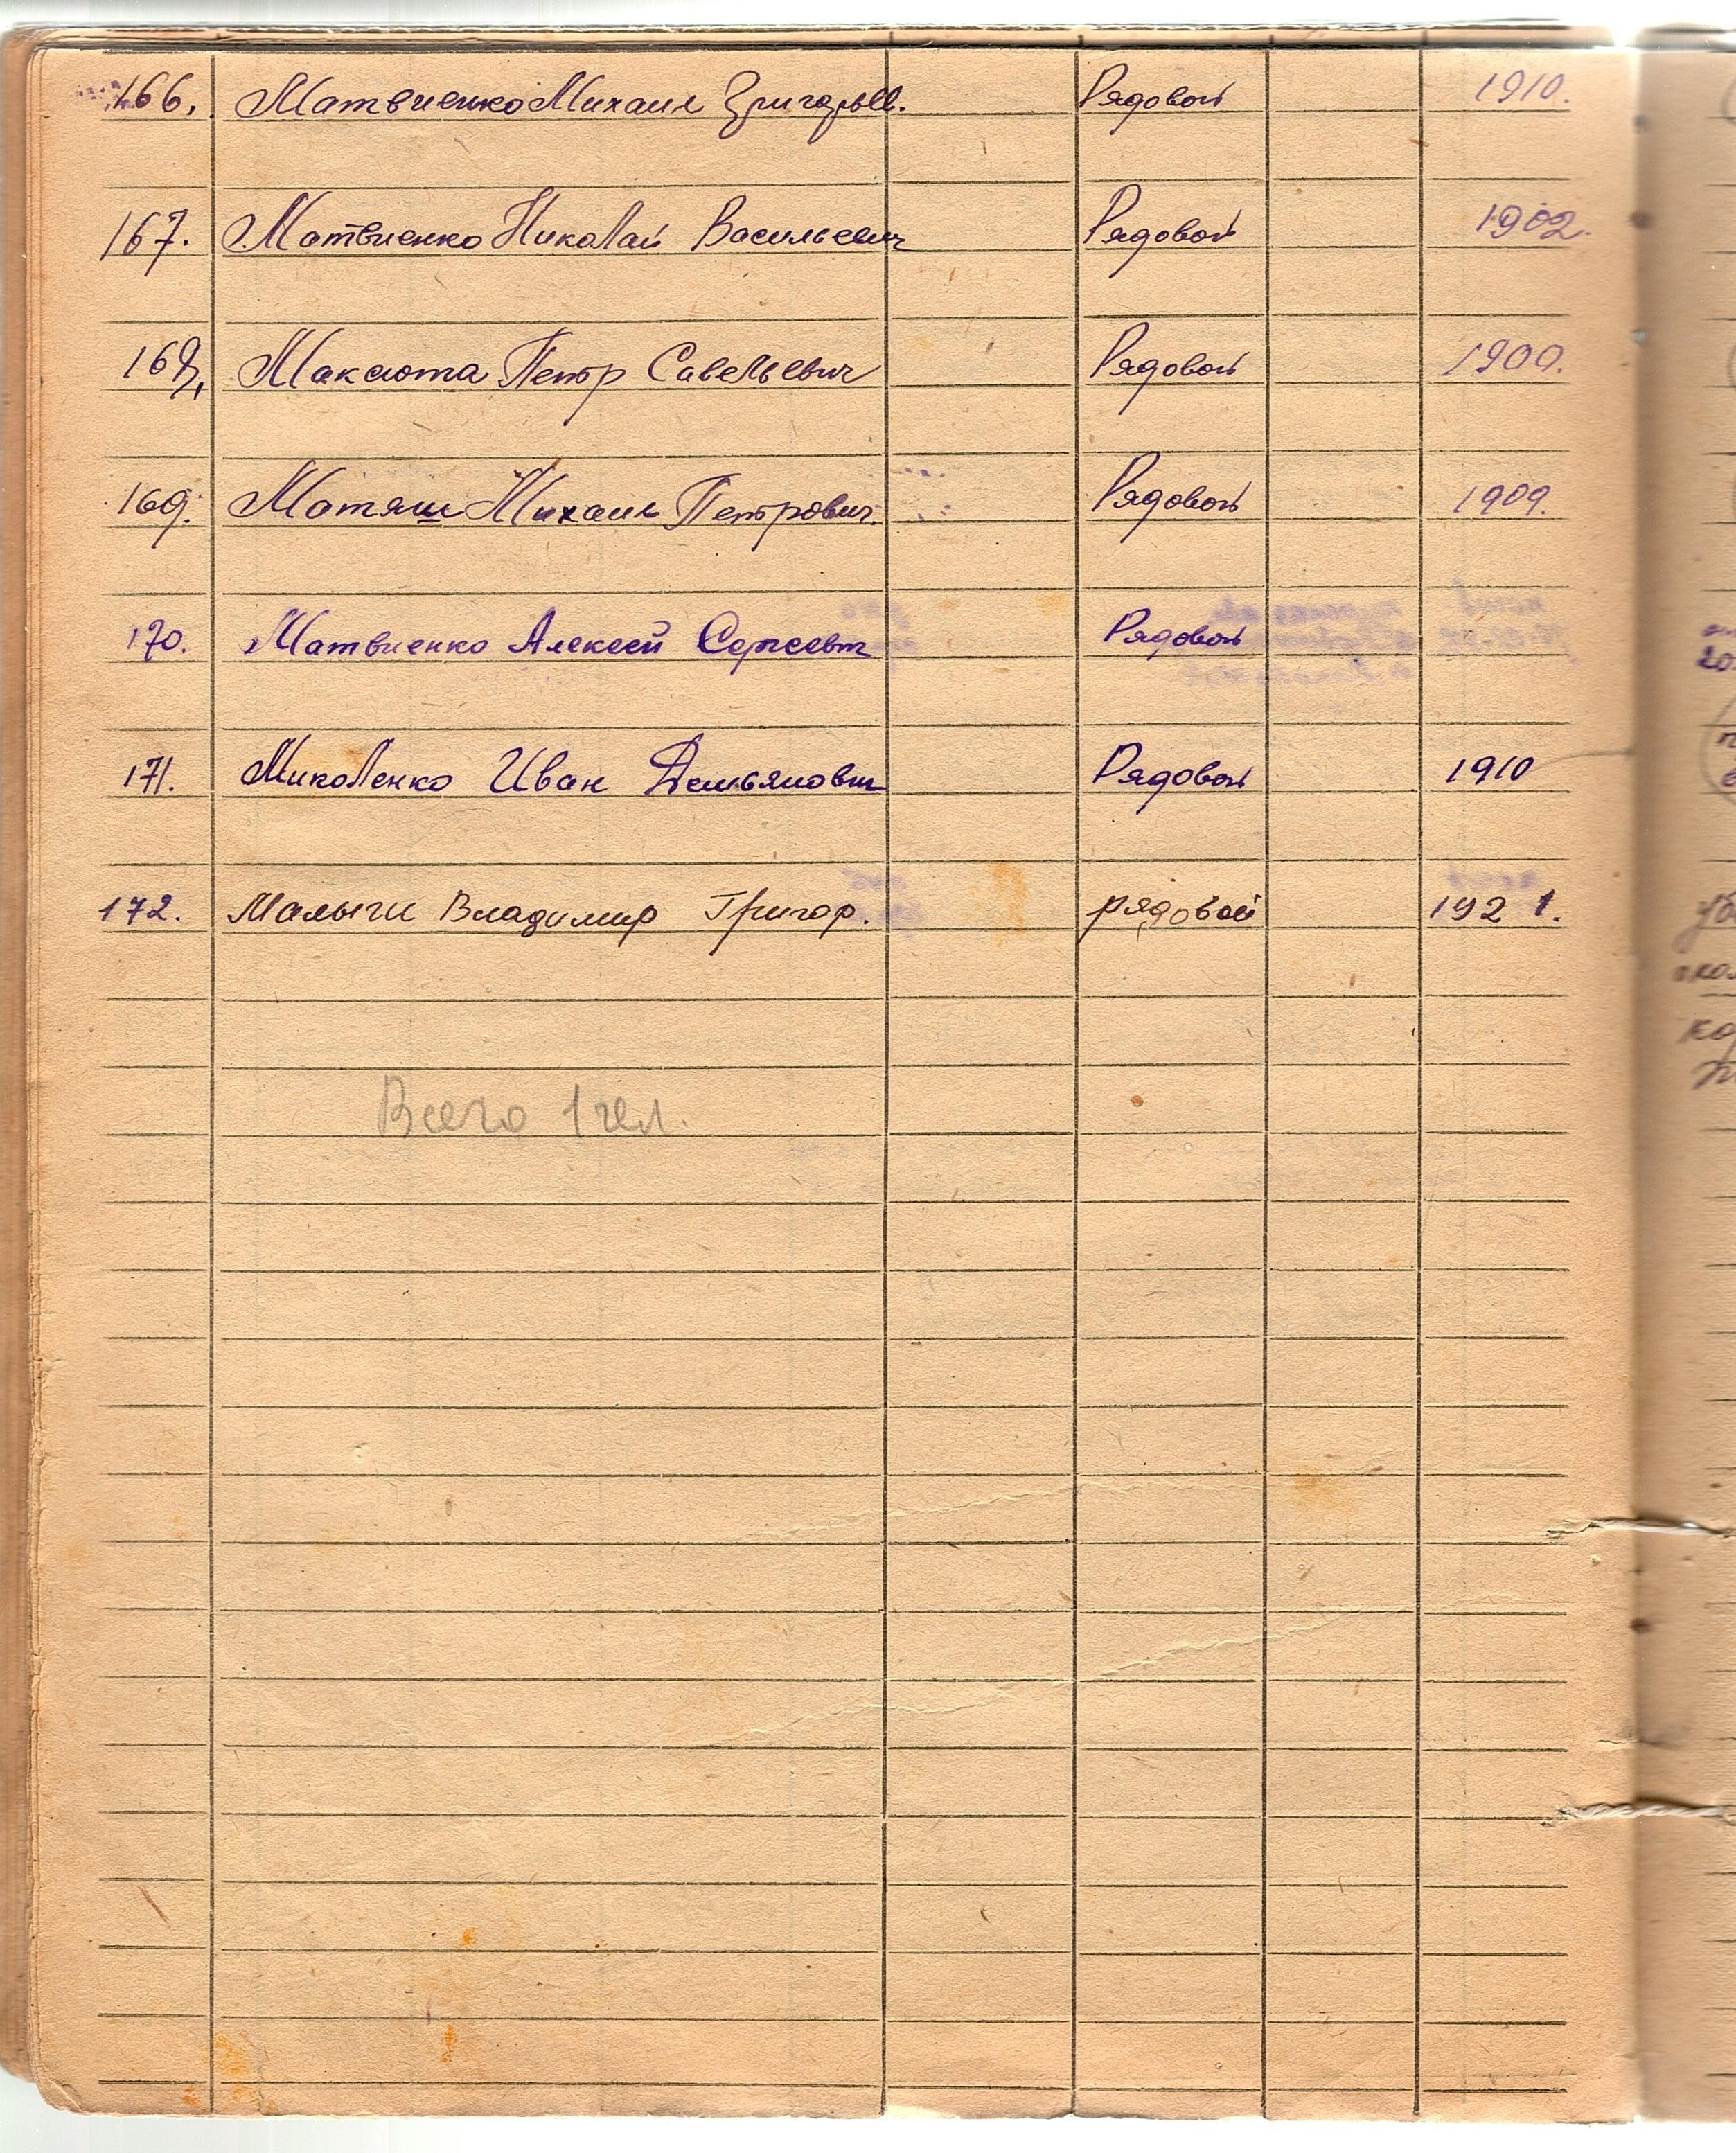 166. Матвиенко Михаил Григорьев. Рядовой 1910.
167. Матвиенко Николай Васильевич Рядовой 1902.
168, Максюта Петр Савельевич Рядовой 1900.
169. Матяш Михаил Петрович. Рядовой 1909.
170. Матвиенко Алексей Сергеевич Рядовой
171. Миколенко Иван Демьянович Рядовой 1910
172. Малыги Владимир Григор. рядовой 1921.
Всего 1 чел.